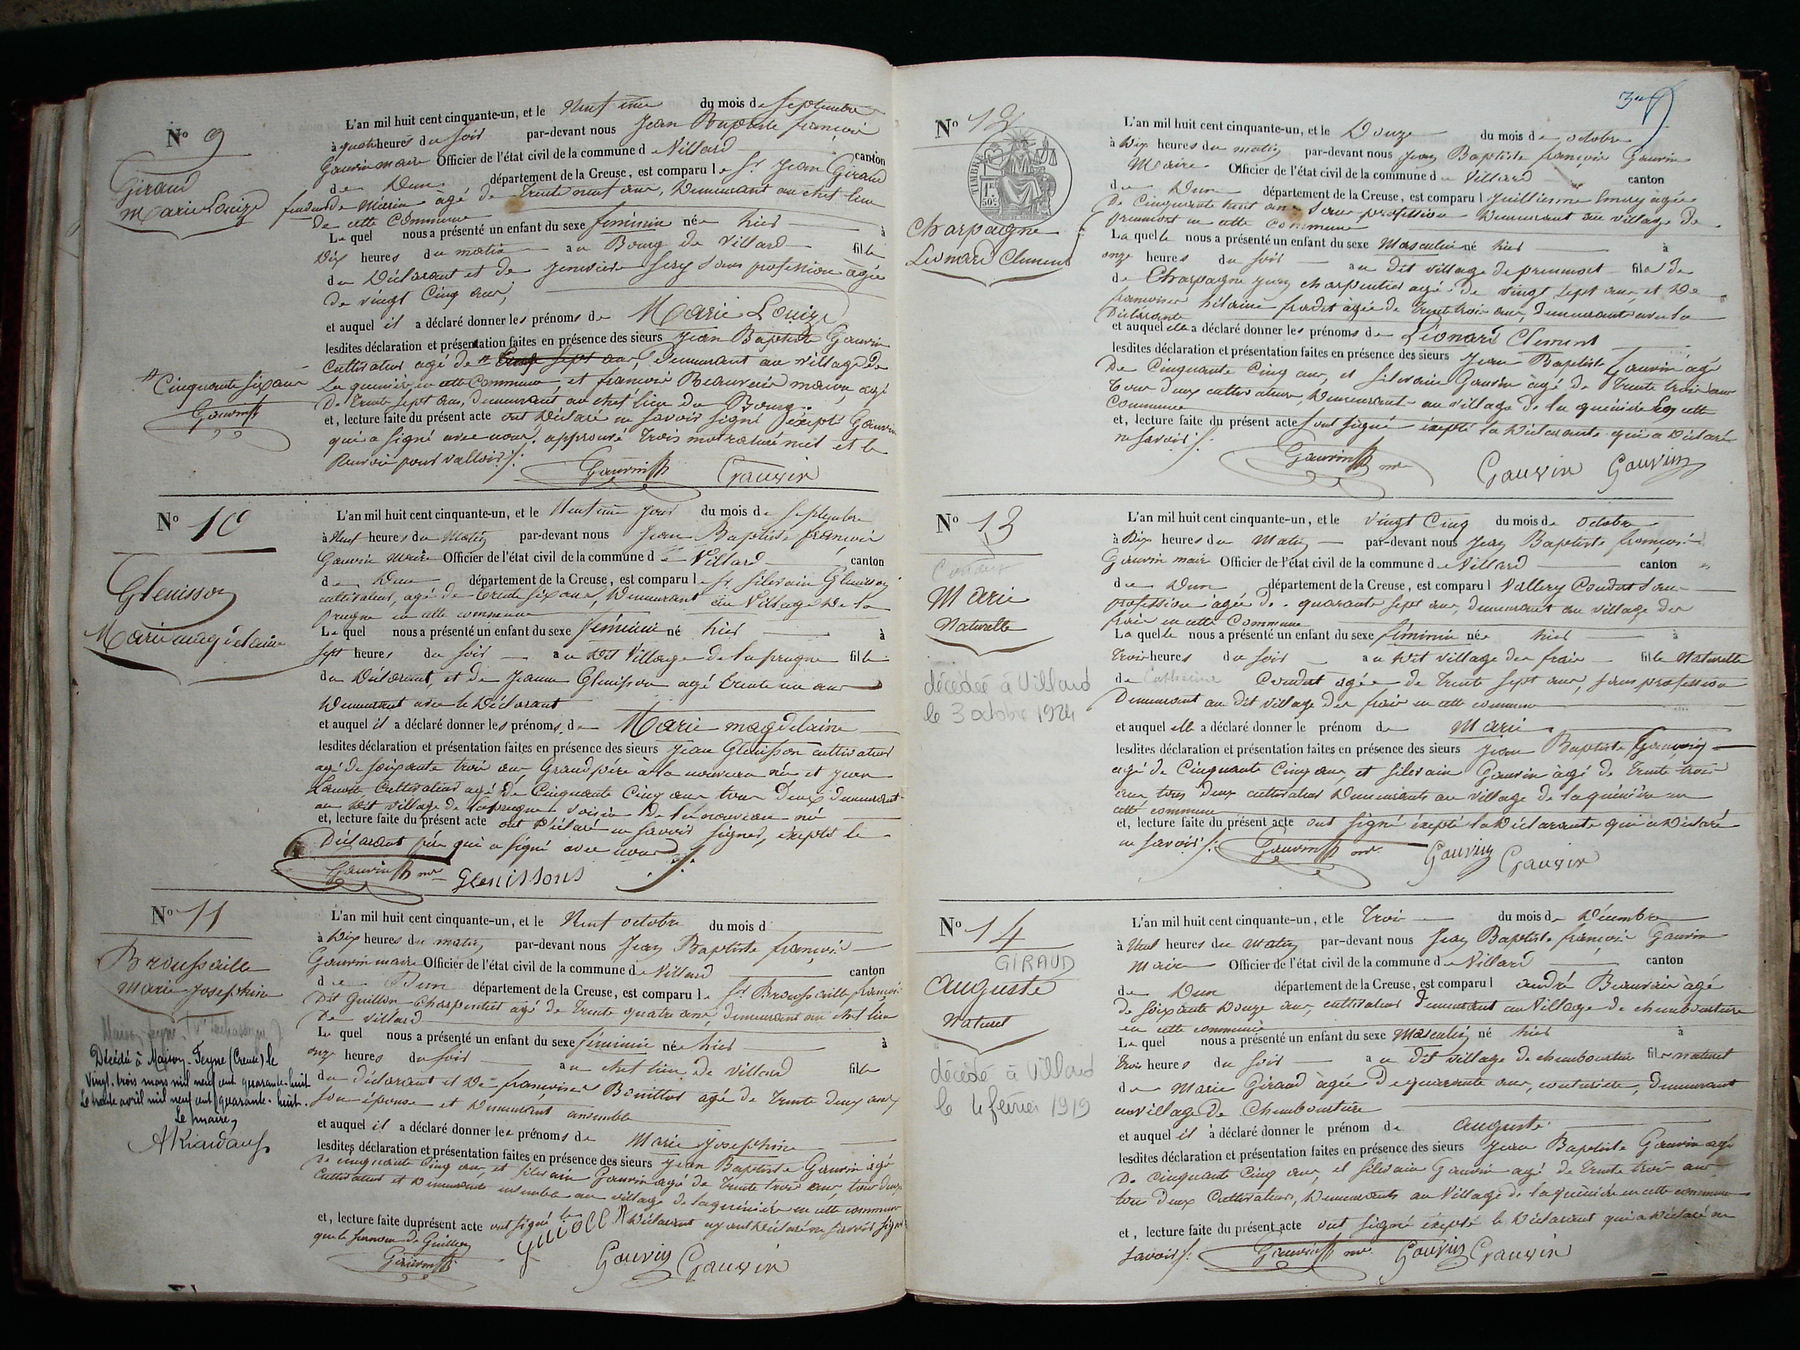 N.o 9
Giraud
Marie Louize
L'an mil huit cent cinquante-un, et le Neuvième du mois de Septembre
à quatre heures du soir par-devant nous Jean Baptiste françois
Gauvin maire Officier de l'état civil de la commune de Villard canton
de Dun département de la Creuse, est comparu le Sr Jean Giraud
âgé de trente neuf ans, Demeurant au chef lieu
de cette Commune
Lequel nous a présenté un enfant du sexe féminin née hier à
Dix heures du matin au Bourg de Villard fille
du Déclarant et de Sans profession agée
de vingt cinq ans,
et auquel il a déclaré donner les prénoms de Marie Louize
lesdites déclaration et présentation faites en présence des sieurs Jean Baptiste Gauvin
Cultivateur agé de demeurant au village de
en cette Commune, et françois Beauvais maçon, agé
De trente sept ans, demeurant au chef lieu du Bourg
et, lecture faite du présent acte ont Déclaré ne savoir signé éxépté Gauvin
qui a signé avec nous. approuvé trois mots raturé nuls et le
Renvoie pour valloir
Cinquante six ans
Gauvin
Gauvin Gauvin
N.o 10
Gleuisson
Marie magdelaine
L'an mil huit cent cinquante-un, et le Neuvième jour du mois de Septembre
à heures du Matin par-devant nous Jean Baptiste françois
Gauvin Maire Officier de l'état civil de la commune de Villard canton
de Dun département de la Creuse, est comparu le Sr Silvain Gleuisson
cultivateur, agé de trente six ans, Demeurant au Village de la
prugne en cette commune
Lequel nous a présenté un enfant du sexe féminin né hier à
Sept heures du Soir au Dit Village de la prugne fille
du Déclarant, et de Jeanne Gleuisson agé trente un ans
Demeurant avec le Déclarant
et auquel il a déclaré donner les prénoms de Marie magdelaine
lesdites déclaration et présentation faites en présence des sieurs Jean Gleuisson cultivateur
agé de soixante trois ans Grand père à la nouveau né et Jean
Cultivateur agé de Cinquante Cinq ans tous Deux Demeurant
au Dit village de la prugne voisin De la nouveau né
et, lecture faite du présent acte ont Déclaré ne Savoir Signer, éxépté le
Déclarant père qui a signé avec nous
Gauvin mre Gleuissons
N.o 11
Broussaille
Marie Josephine
Décédé à Maison-Feyne (Creuse) le
Vingt-trois mars mil neuf cent quarante-huit
Le trente avril mil neuf cent quarante-huit.
Le maire,
L'an mil huit cent cinquante-un, et le Neuf octobre du mois d
à Dix heures du matin par-devant nous Jean Baptiste françois
Gauvin maire Officier de l'état civil de la commune de Villard canton
de Dun département de la Creuse, est comparu le Sr Broussaille françois
Dit Guillon Charpentier agé de trente quatre ans, demeurant au chef lieu
De Villard
Lequel nous a présenté un enfant du sexe féminin née hier à
onze heures du soir au chef lieu de Villard fille
du déclarant et De françoise Bouillot agé de trente deux ans
son épouse et Demeurant ensemble
et auquel il a déclaré donner les prénoms de Marie Josephine
lesdites déclaration et présentation faites en présence des sieurs Jean Baptiste Gauvin agé
De cinquante cinq ans, et Silvain Gauvin agé de trente trois ans, tous deux
Cultivateurs et Demeurants ensemble au village de laguinière en cette commune
et, lecture faite du présent acte ont signé le Déclarant ayant Déclaré ne savoir signer
que le surnom de Guillon
Guioll
Gauvin Gauvin Gauvin
N.o 12
TIMBRE
1f
50c
Charpaigne
Léonard Clement
L'an mil huit cent cinquante-un, et le Douze du mois de octobre
à Dix heures du matin par-devant nous Jean Baptiste françois Gauvin
Maire Officier de l'état civil de la commune de Villard canton
de Dun département de la Creuse, est comparu l agée
De Cinquante huit ans Sans profession Demeurant au village de
premiort en cette commune
Laquelle nous a présenté un enfant du sexe Masculin né hier à
onze heures du soir au dit village de premiort fils de
de Charpaigne Jean charpentier agé de vingt sept ans, et De
françoise hilaire fradet agée de trente trois ans, demeurant avec la
Déclarante
et auquel elle a déclaré donner les prénoms de Léonard Clement
lesdites déclaration et présentation faites en présence des sieurs Jean Baptiste Gauvin agé
De Cinquante Cinq ans, et Silvain Gauvin âgé de trente trois ans
tous deux cultivateurs, Demeurant au village de la guinière en cette
Commune
et, lecture faite du présent acte ont signé éxépté la Déclarante qui a Déclaré
ne savoir
Gauvin mre Gauvin Gauvin
N.o 13
Condat
Marie
Naturelle
décédée à Villard
le 3 octobre 1924
L'an mil huit cent cinquante-un, et le vingt Cinq du mois de octobre
à Dix heures du Matin par-devant nous Jean Baptiste françois
Gauvin maire Officier de l'état civil de la commune de Villard canton
de Dun département de la Creuse, est comparu l Vallery Condat Sans
profession agée de quarante sept ans, demeurant au village des
frais en cette Commune
Laquelle nous a présenté un enfant du sexe féminin née hier à
trois heures du soir au Dit village des frais fille Naturelle
de Catherine Condat agée de trente sept ans, sans profession
Demeurant au dit village des frais en cette commune
et auquel elle a déclaré donner le prénom de Marie
lesdites déclaration et présentation faites en présence des sieurs Jean Baptiste Gauvin
agé de Cinquante Cinq ans et Silvain Gauvin âgé de trente trois
ans tous deux cultivateurs Demeurants au village de la guinière en
cette commune
et, lecture faite du présent acte ont signé éxépté la Déclarante qui a Déclaré
ne savoir
Gauvin mre Gauvin Gauvin
N.o 14
GIRAUD
Auguste
Naturel
décédé à Villard
le 4 février 1919
L'an mil huit cent cinquante-un, et le trois du mois de Décembre
à Neuf heures du Matin par-devant nous Jean Baptiste françois Gauvin
Maire Officier de l'état civil de la commune de Villard canton
de Dun département de la Creuse, est comparu l andré Beauvais âgé
de Soixante Douze ans, cultivateur Demeurant au Village de chembouture
en cette commune
Lequel nous a présenté un enfant du sexe Masculin né hier à
trois heures du Soir au dit village de chembouture fils naturel
de Marie Giraud âgée De quarante ans, couturière, demeurant
au village De Chembouture
et auquel il a déclaré donner le prénom de auguste
lesdites déclaration et présentation faites en présence des sieurs Jean Baptiste Gauvin agé
De cinquante Cinq ans, et Silvain Gauvin agé de trente trois ans
tous deux Cultivateurs, Demeurants au Village de la guinière en cette commune
et, lecture faite du présent acte ont signé éxépté le Déclarant qui a Déclaré ne
savoir
Gauvin mre Gauvin Gauvin